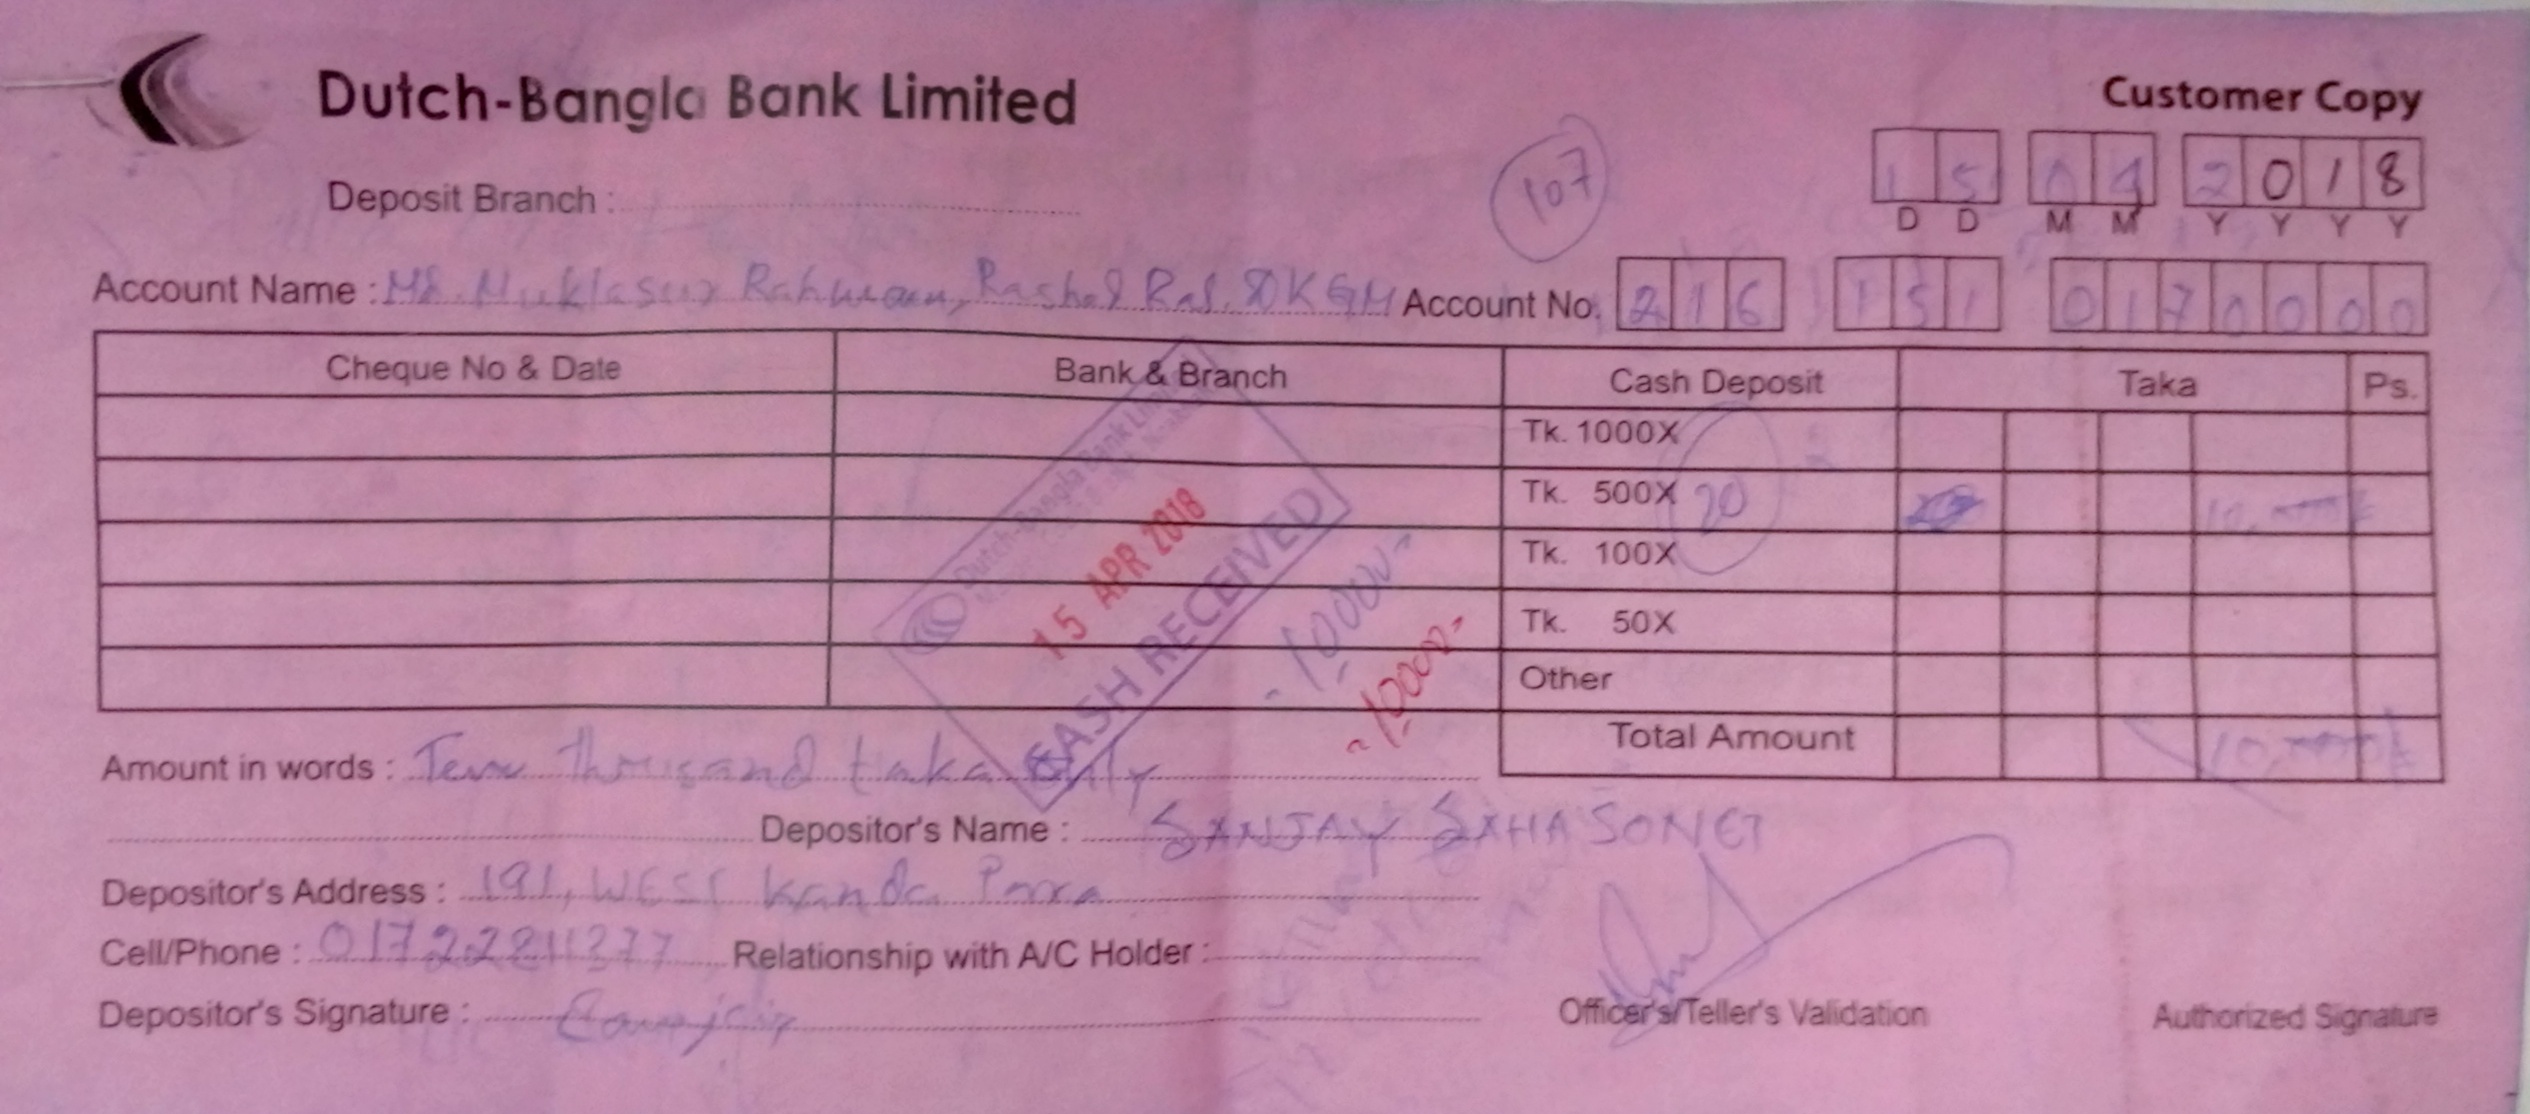 Dutch-Bangla Bank Limited
Customer Copy
15 04 2018
D D M M Y Y Y Y
Deposit Branch :
107
Account Name : Md. Muklasur Rahman, Account No. 216 151 0170000
Cheque No & Date Bank & Branch Cash Deposit Taka Ps.
Tk. 1000X
Tk. 500X 20 10,000/-
Tk. 100X
Tk. 50X
Other
Total Amount 10,000/-
Dutch-Bangla Bank Limited
15 APR 2018
CASH RECEIVED
-10000-
-10000-
Amount in words : Ten thousand taka only
Depositor's Name : SANJAY SAHA SONET
Depositor's Address : 191, WEST Kanda Para
Cell/Phone : 01722211377 Relationship with A/C Holder :
Depositor's Signature :
Officer's/Teller's Validation Authorized Signature